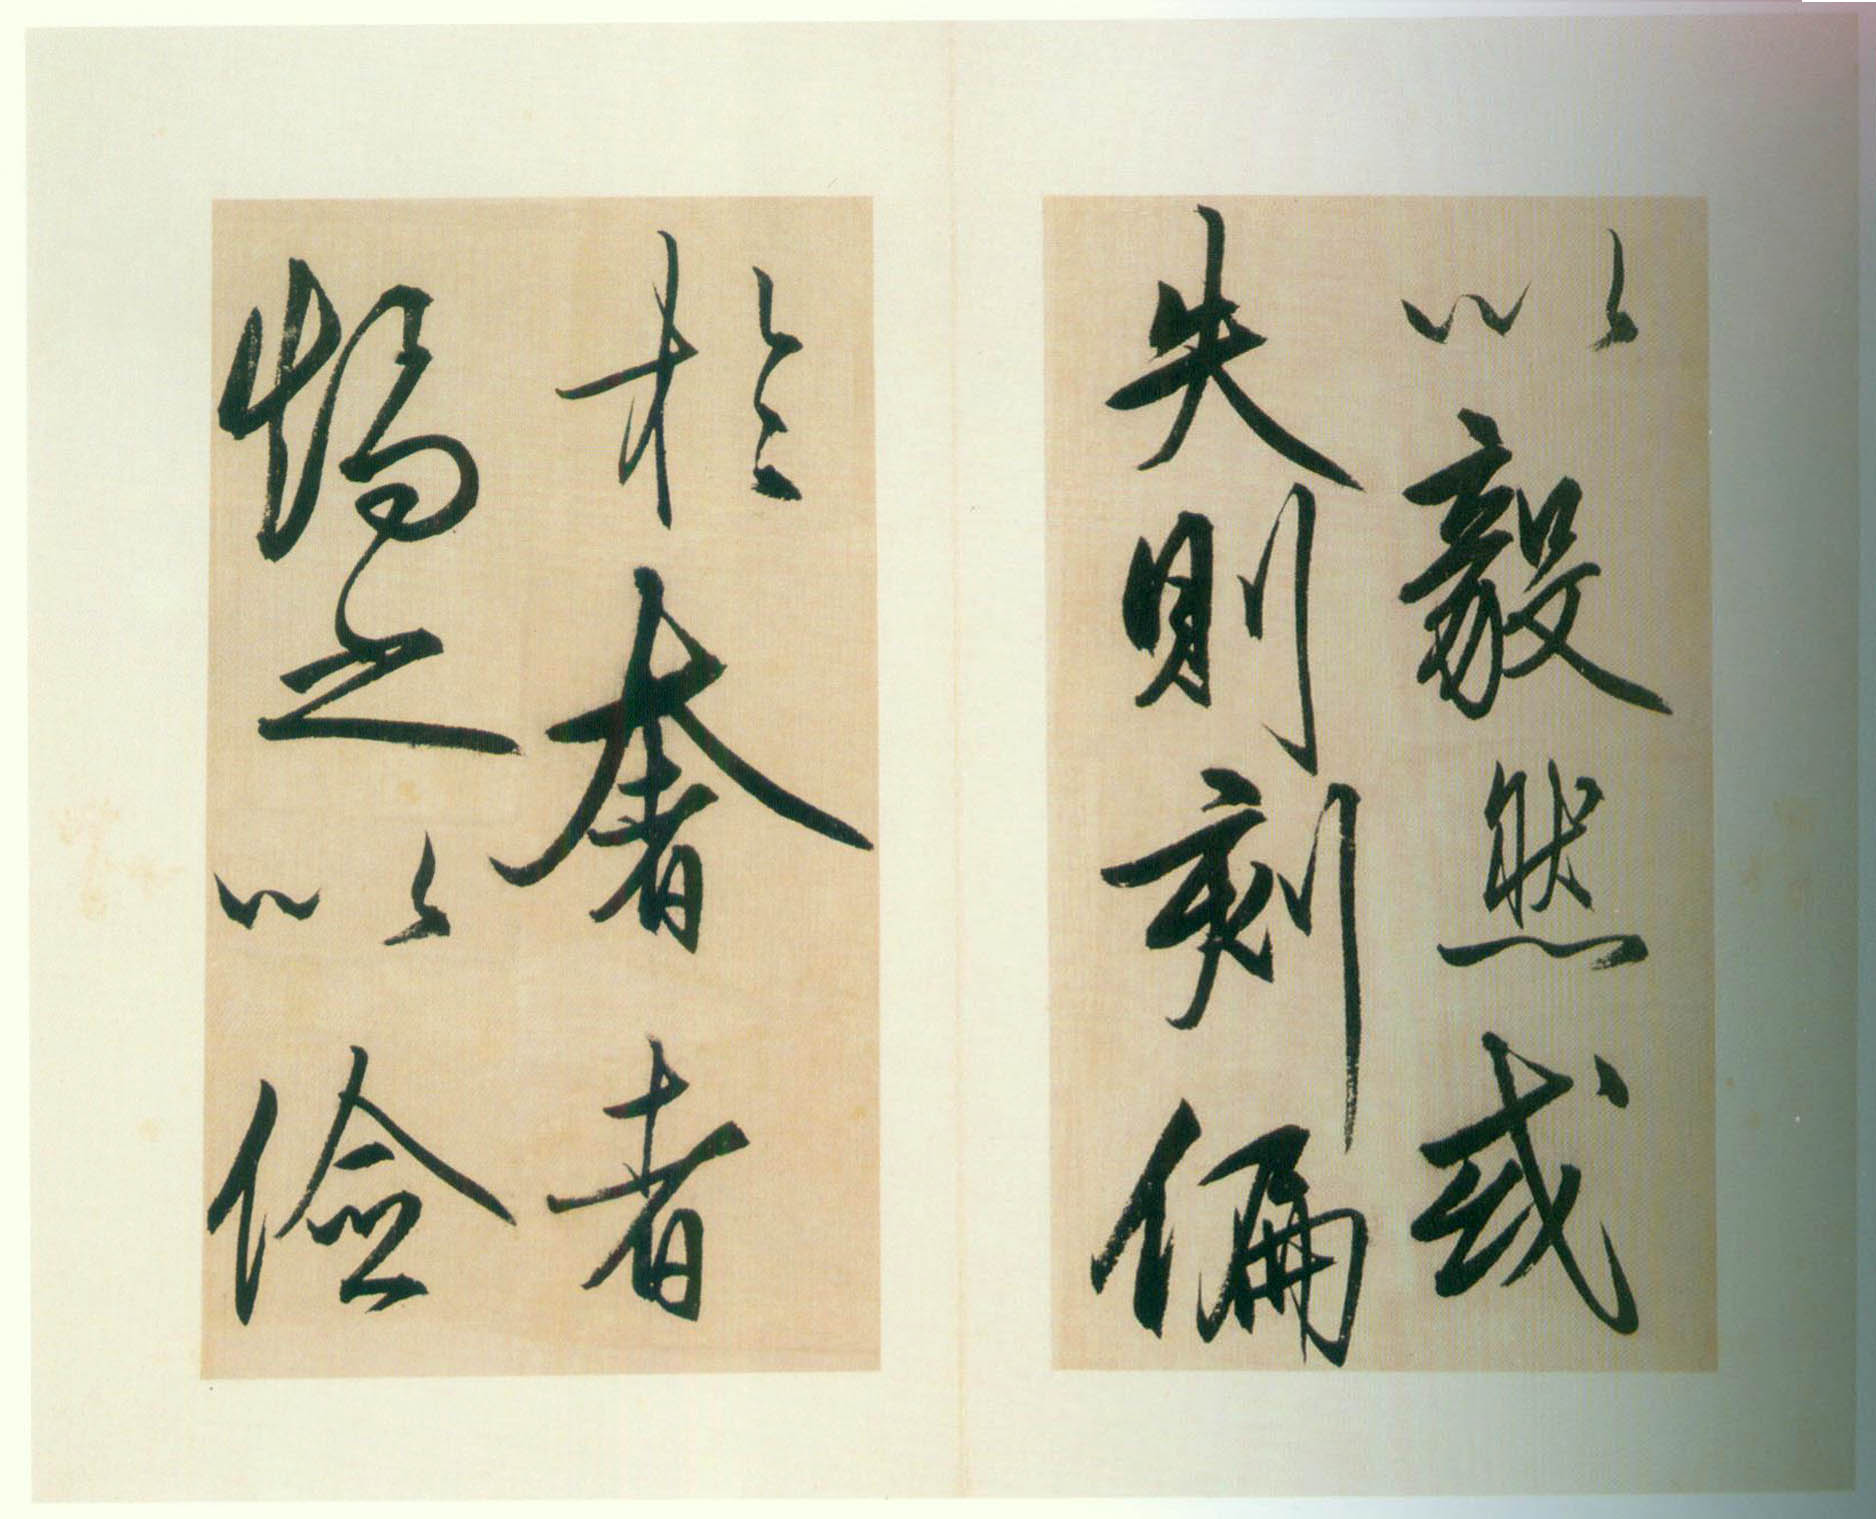 以毅然或
失則刻偏
於奢者
矯之以
儉